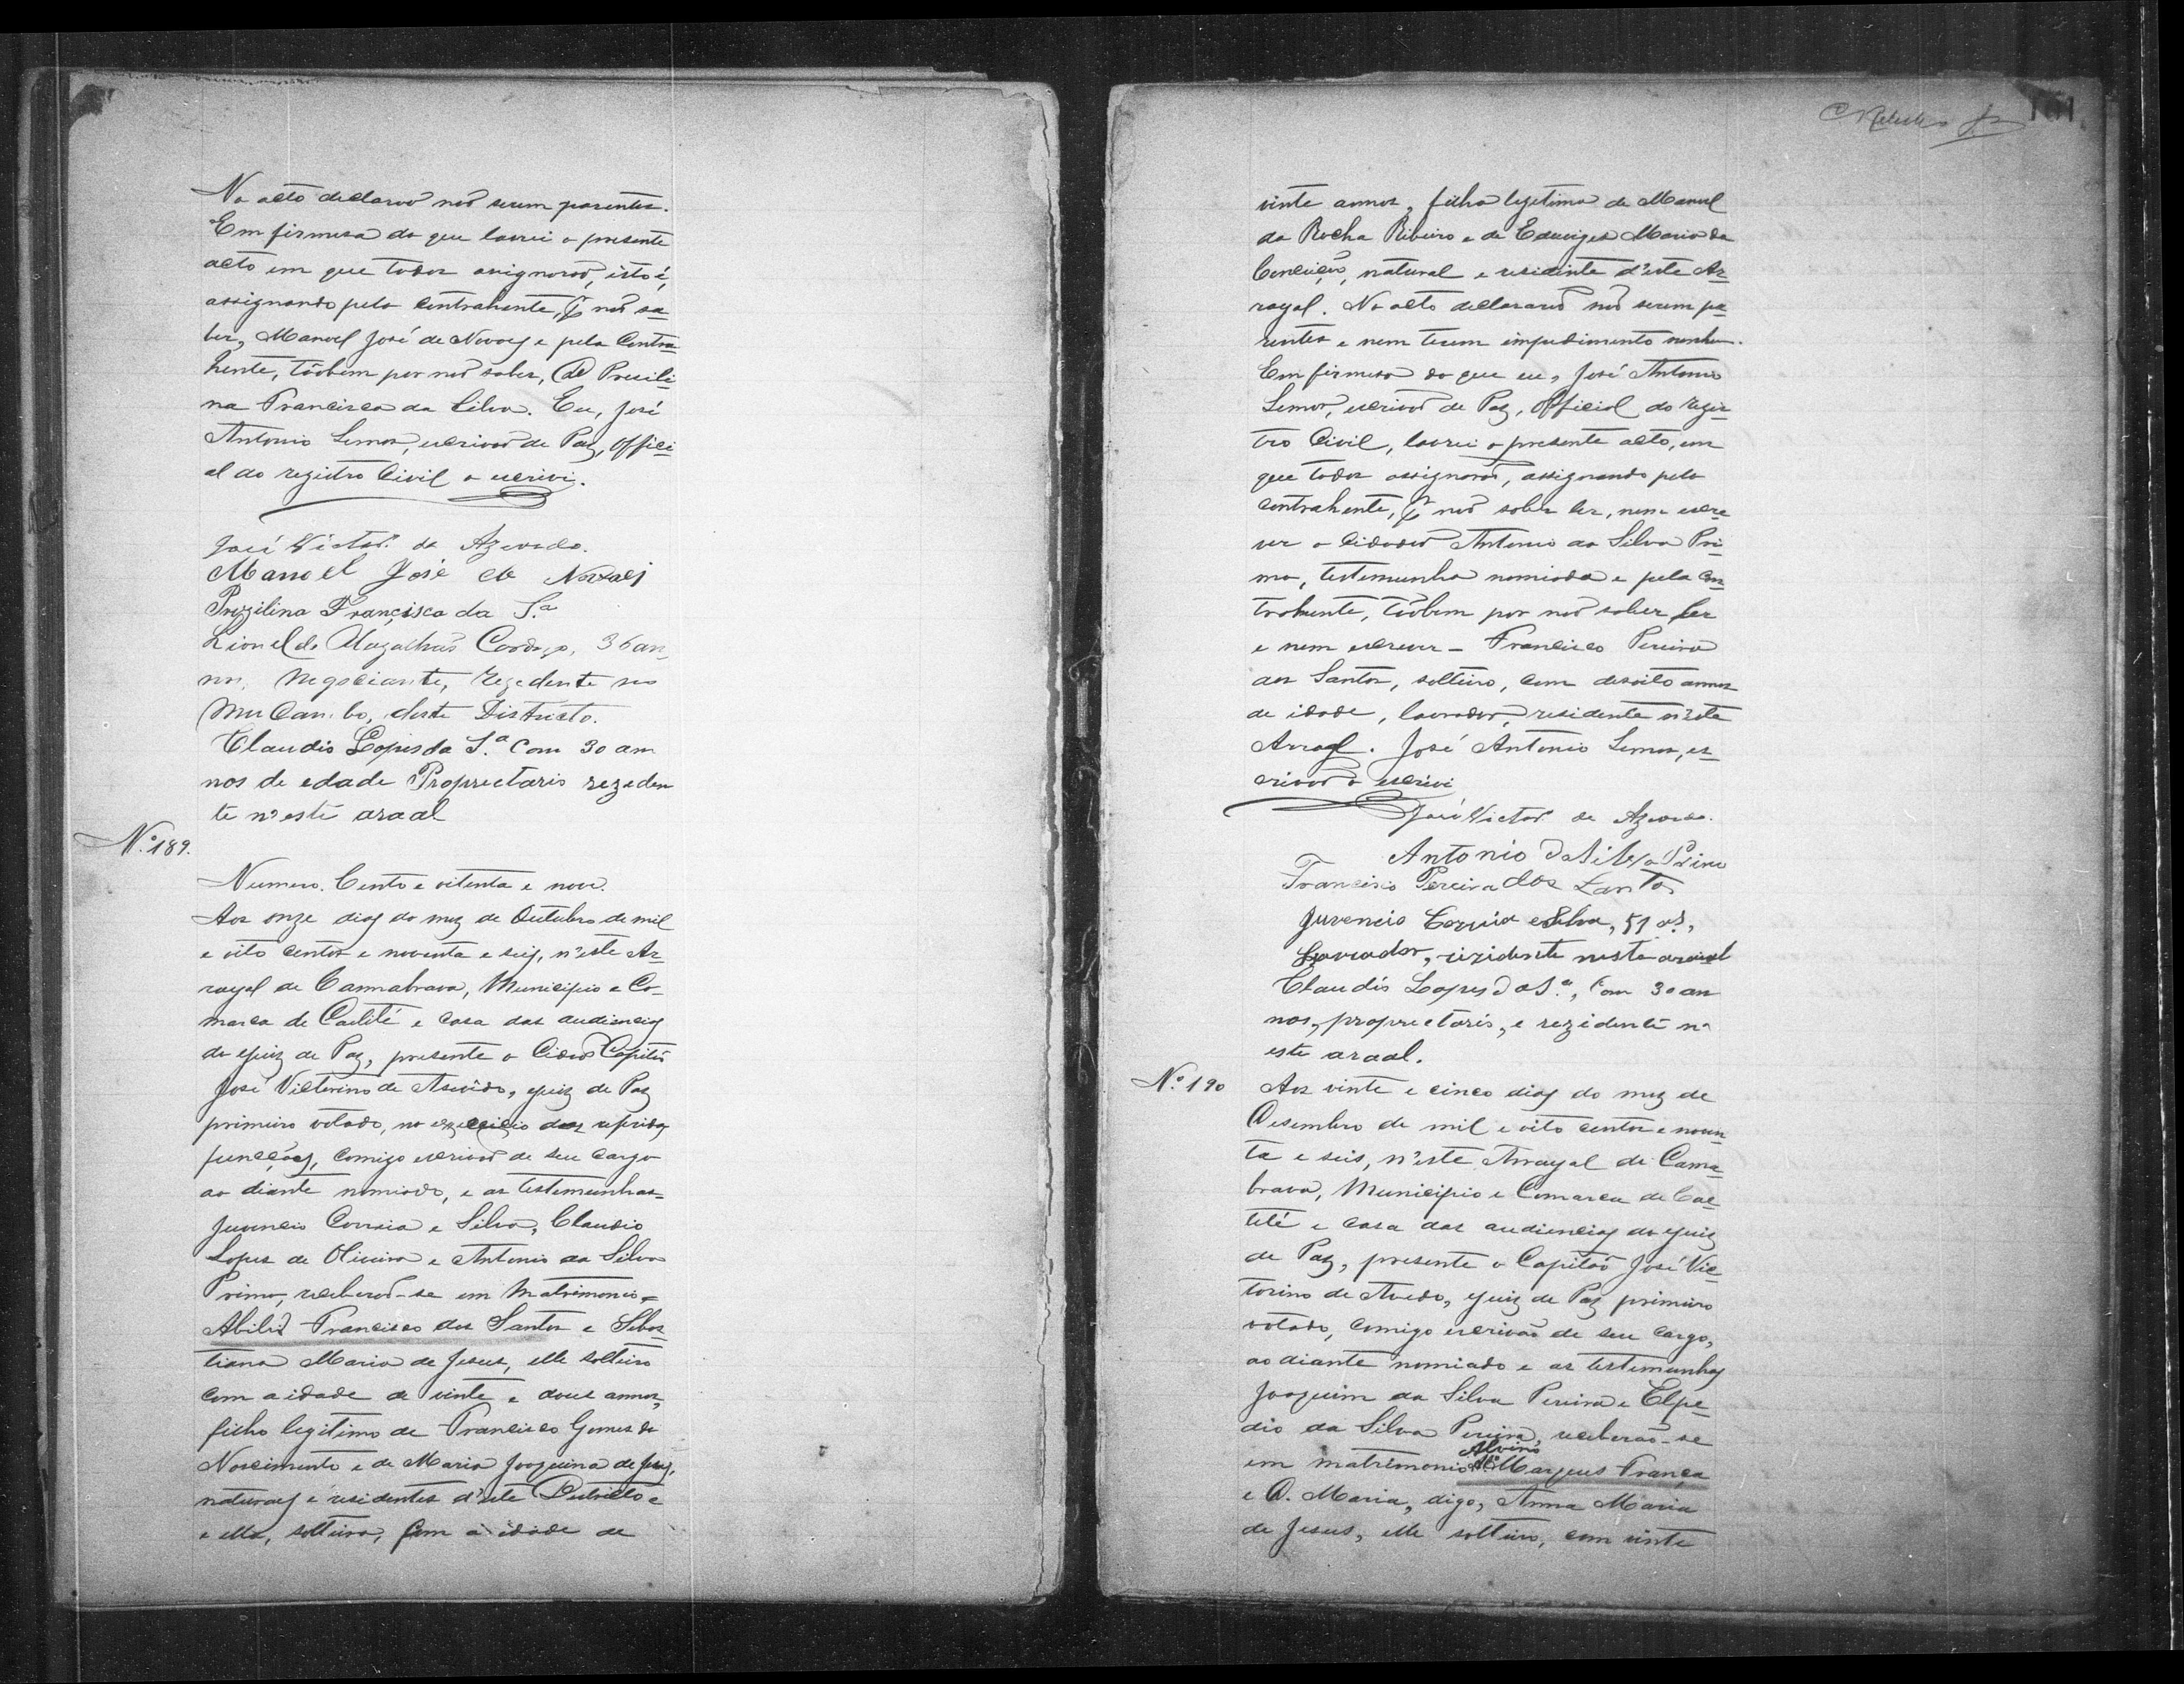 No acto declarao não serem parentes.
Em firmesa do que lavrei o presente
acto em que todos assignarão, isto é,
assignando pelo contrahente, q̃ não sa-
ber, Manoel José de Novaes e pela Contra-
hente, tãobem por não saber, D Presili-
na Francisca da Silva. Eu, José
Antonio Lemos, escrivão de Paz, Offici-
al do registro Civil o escrivi.
José Victor.º de Azevedo.
Manoel José de Novaes
Prezilina Françisca da S.ª
Lionel de Magalhães Cardozo, 36 an-
nos, Negociante, Rezedente no
MuCambo, deste Districto.
Claudio Lopes da S.ª Com 30 an
nos de edade Proprectario rezeden
te n'este araal
N.º 189.
Numero. Cento e oitenta e nove.
Aos onze dias do mez de Outubro de mil
e oito centos e noventa e seis, n'este Ar-
rayal de Cannabrava, Municipio e Co-
marca de Caeteté e casa das audiencias
do Juiz de Paz, presente o Cidadão Capitão
José Victorino de Asevêdo, Juiz de Paz
primeiro votado, no exercicio das referidas
funcções, comigo escrivão de seu cargo
ao diante nomiado, e as testemunhas
Juvencio Correia e Silva, Claudio
Lopes de Oliveira e Antonio da Silva
Primo, receberão-se em Matrimonio
Abilio Francisco dos Santos e Sebas-
tiana Maria de Jesus, elle solteiro
com a idade de vinte e dous annos,
filho legitimo de Francisco Gomes do
Nascimento e de Maria Joaquina de Jesus,
naturaes e residentes d'este Destricto e
e ella, solteira, com a idade de
161
vinte annos, filha legitima de Manoel
da Rocha Ribeiro e de Eduviges Maria da
Conceição, natural e residente d'este Ar-
rayal. No acto declararão não serem pa-
rentes e nem terem impedimento nenhum.
Em firmesa do que eu, José Antonio
Lemos, escrivão de Paz, Official do regis-
tro Civil, lavrei o presente acto, em
que todos assignarão, assignando pelo
contrahente, q̃ não saber ler, nem escre-
ver o Cidadão Antonio da Silva Pri-
mo, testemunha nomiada e pela con-
trahente, tãobem por não saber ler
e nem escrever - Francisco Pereira
dos Santos, solteiro, com desoito annos
de idade, lavrador, residente n'este
Arraal. José Antonio Lemos, es-
crivão o escrivi
José Victor.º de Azevedo.
Antonio da Silva Primo
Francisco Pereira dos Santos
Juvencio Correia e Silva, 51 a.s,
Lavrador, rezidente neste arraial
Claudio Lopes da S.ª, Com 30 an
nos, proprectario, e rezidente n'
este araal.
N.º 190
Aos vinte e cinco dias do mez de
Desembro de mil e oito centos e noven
ta e seis, n'este Arrayal de Canna-
brava, Municipio e Comarca de Cae-
teté e casa das audiencias do Juiz
de Paz, presente o Capitão José Vic-
torino de Asvedo, Juiz de Paz primeiro
votado, comigo escrivão de seu cargo,
ao diante nomiado e as testemunhas
Joaquim da Silva Pereira e Elpe-
dio da Silva Pereira, receberão-se
Alvino
em matrimonio Marques França
e D. Maria, digo, Anna Maria
de Jesus, elle solteiro, com vinte